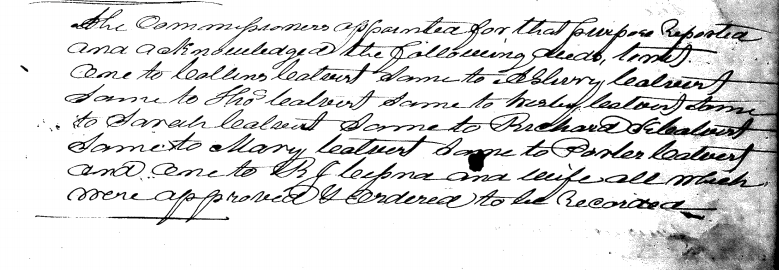 The Commissioners appointed for that purpose Reported
and acknowledged the following deeds, towit
One to Collins Calvert Same to Asbury Calvert
Same to Thos Calvert Same to Wesley Calvert Same
to Sarah Calvert Same to Richard Calvert
Same to Mary Calvert Same to Porter Calvert
and One to R J and wife all which
were approved & Ordered to be Recorded